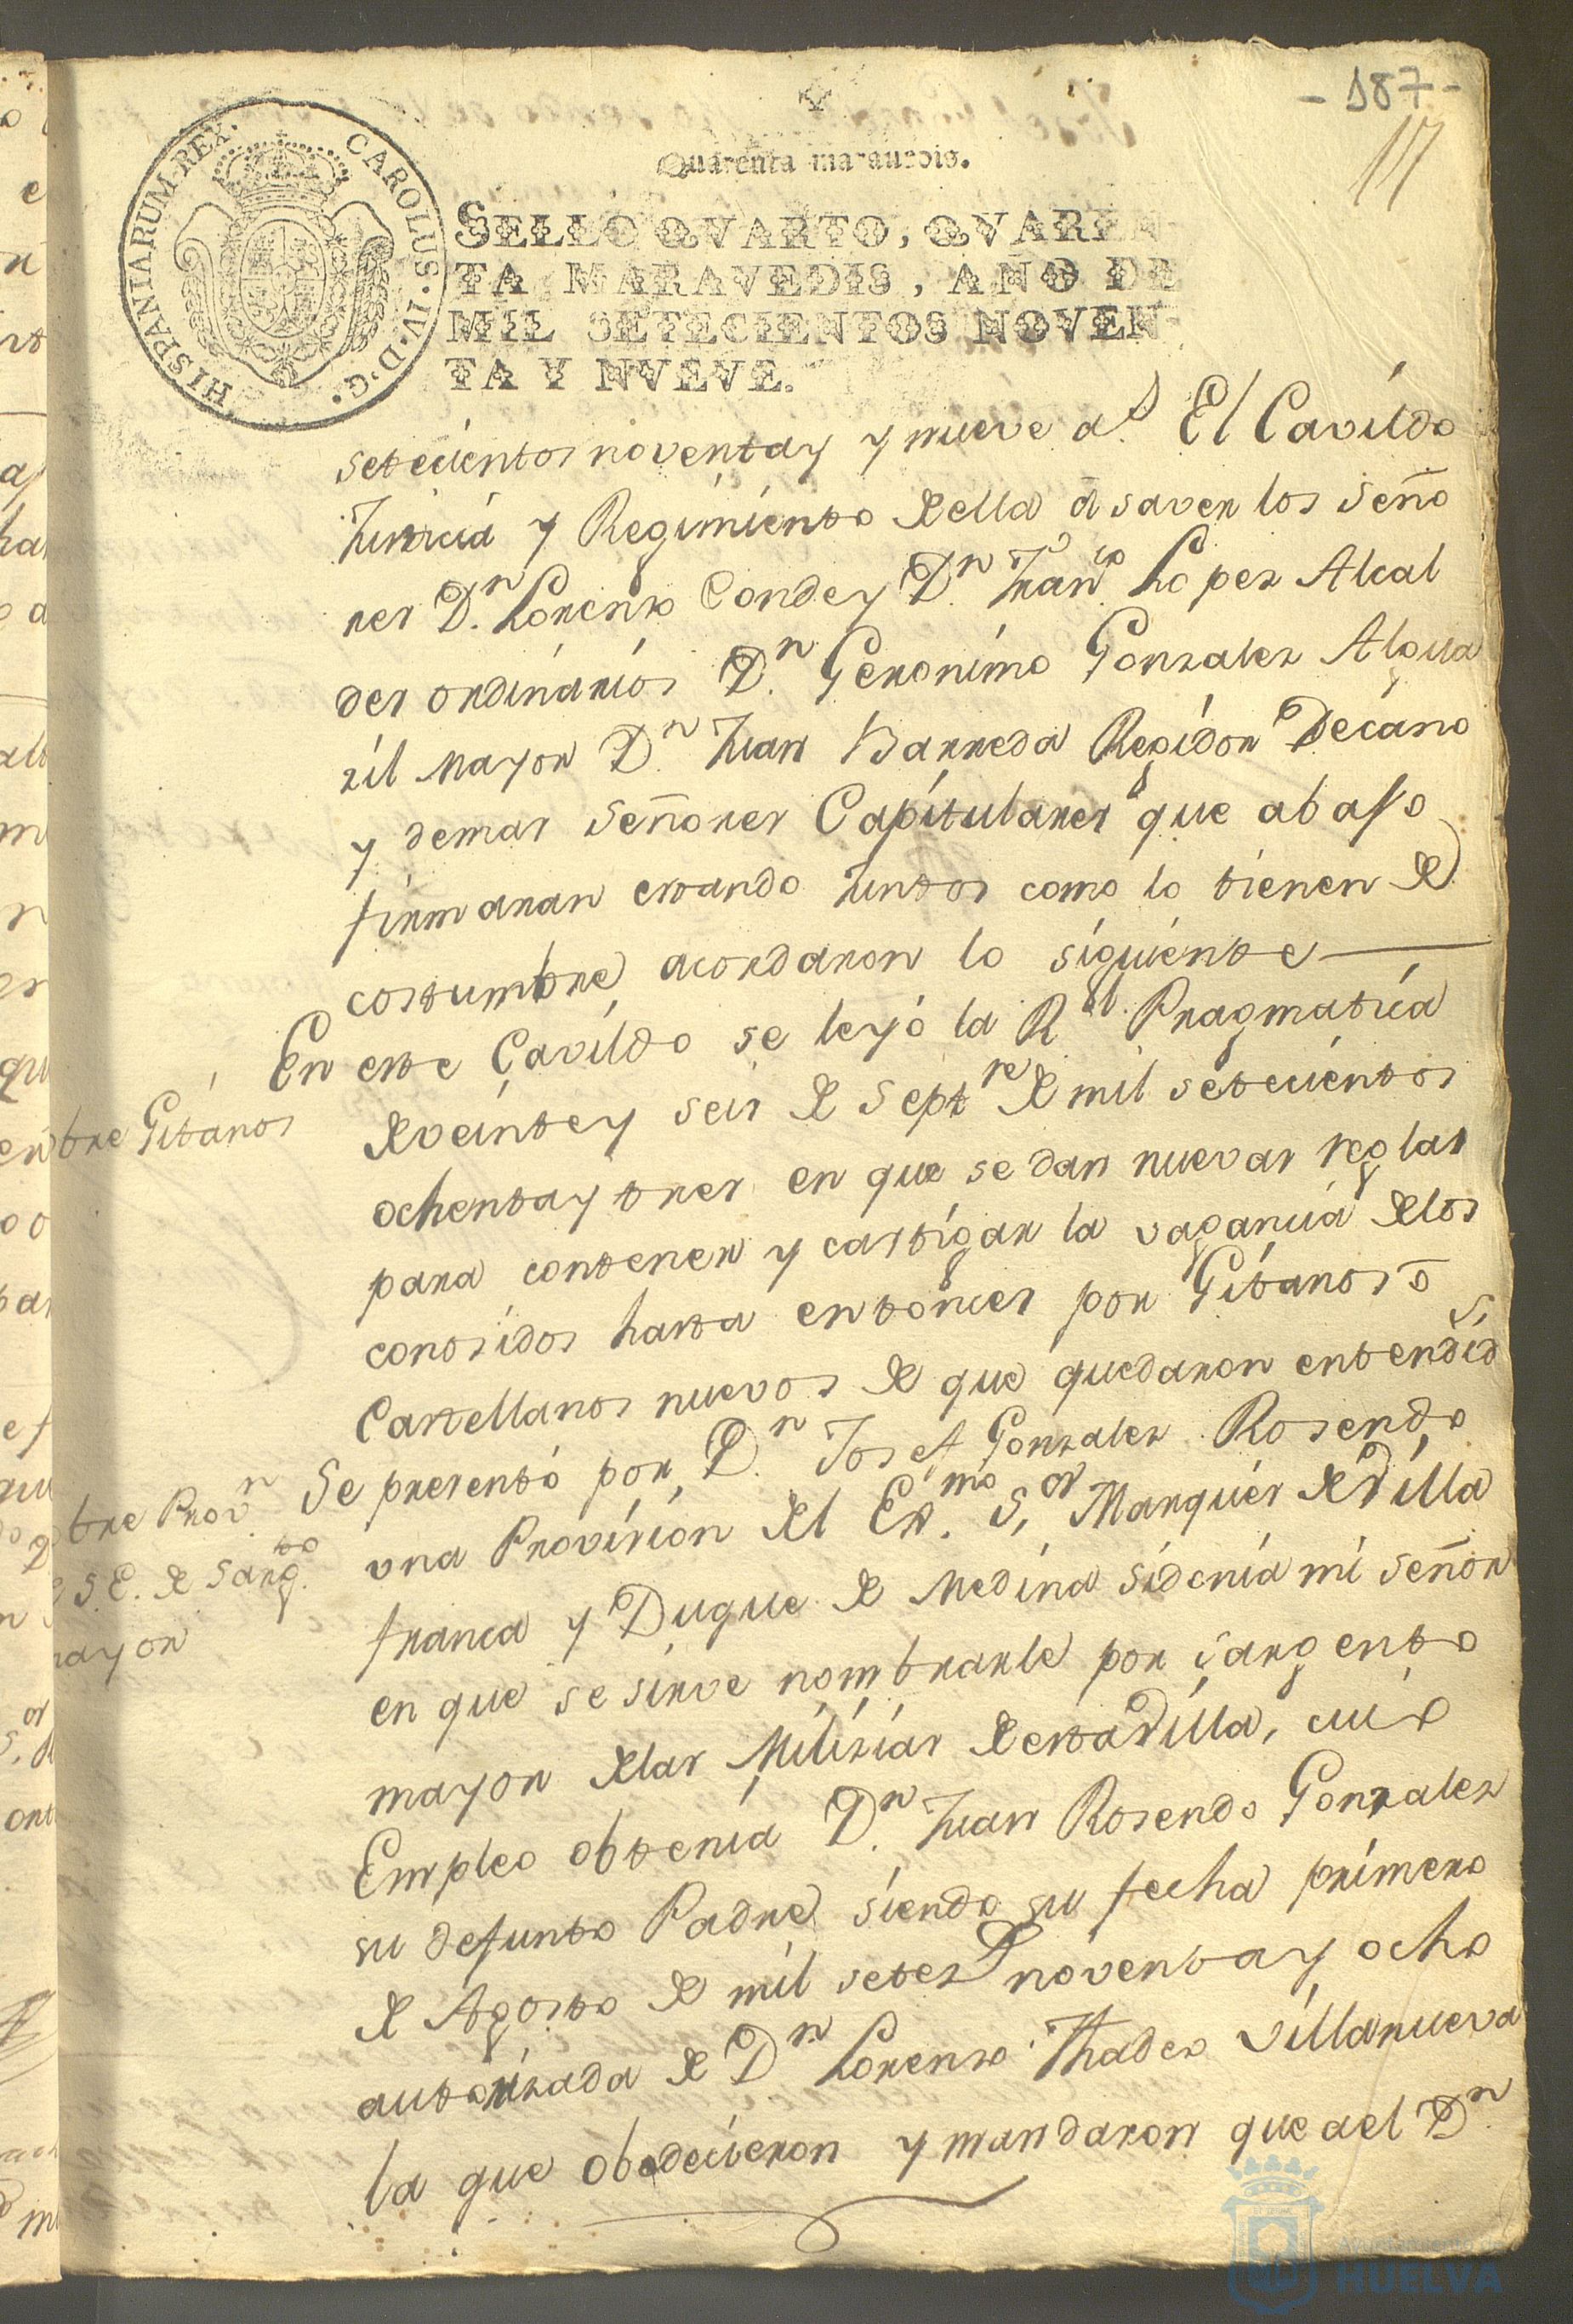 - 187 -
17
Quarenta marauedis.
HISPANIARUM·REX· CAROLUS·IV·D·G·
SELLO QVARTO, QVAREN
TA MARAVEDIS, AÑO DE
MIL SETECIENTOS NOVEN
TA Y NVEVE.
setecientos noventay y nueve a.s El Cavildo
Justicia y Regimiento de ella á saver los Seño
res D.n Lorenzo Conde y D.n Fran.co Lopez Alcal
des ordinarios D.n Geronimo Gonzalez Algua
zil mayor D.n Juan Barreda Regidor Decano
y demas Señores Capitulares que abaso
firmaran estando Juntos como lo tienen de
costumbre acordaron lo siguiente
En este Cavildo se leyó la R.l Pragmatica
bre Gitanos
de veinte y seis de Sept.re de mil setecientos
ochenta y tres en que se dan nuevas reglas
para contener y castigar la vagancia de los
conosidos hasta entonces por Gitanos ó
Castellanos nuevos de que quedaron entendid
Se presentó por D.n Josef Gonzalez Rosendo
bre Prov.n
S.E. de Sarg.to
ayor
una Provision del Ex.mo S.or Marques de Villa
franca y Duque de Medina Sidonia mi Señor
en que se sirve nombrarle por Sargento
mayor de las Milizias de esta Villa, cuio
Empleo obtenia D.n Juan Rosendo Gonzalez
su defunto Padre siendo su fecha primero
de Agosto de mil setez.s noventa y ocho
autorizada de D.n Lorenzo Thadeo Villanueva
la que obedecieron y mandaron que a el D.n
Ayuntamiento de
HUELVA